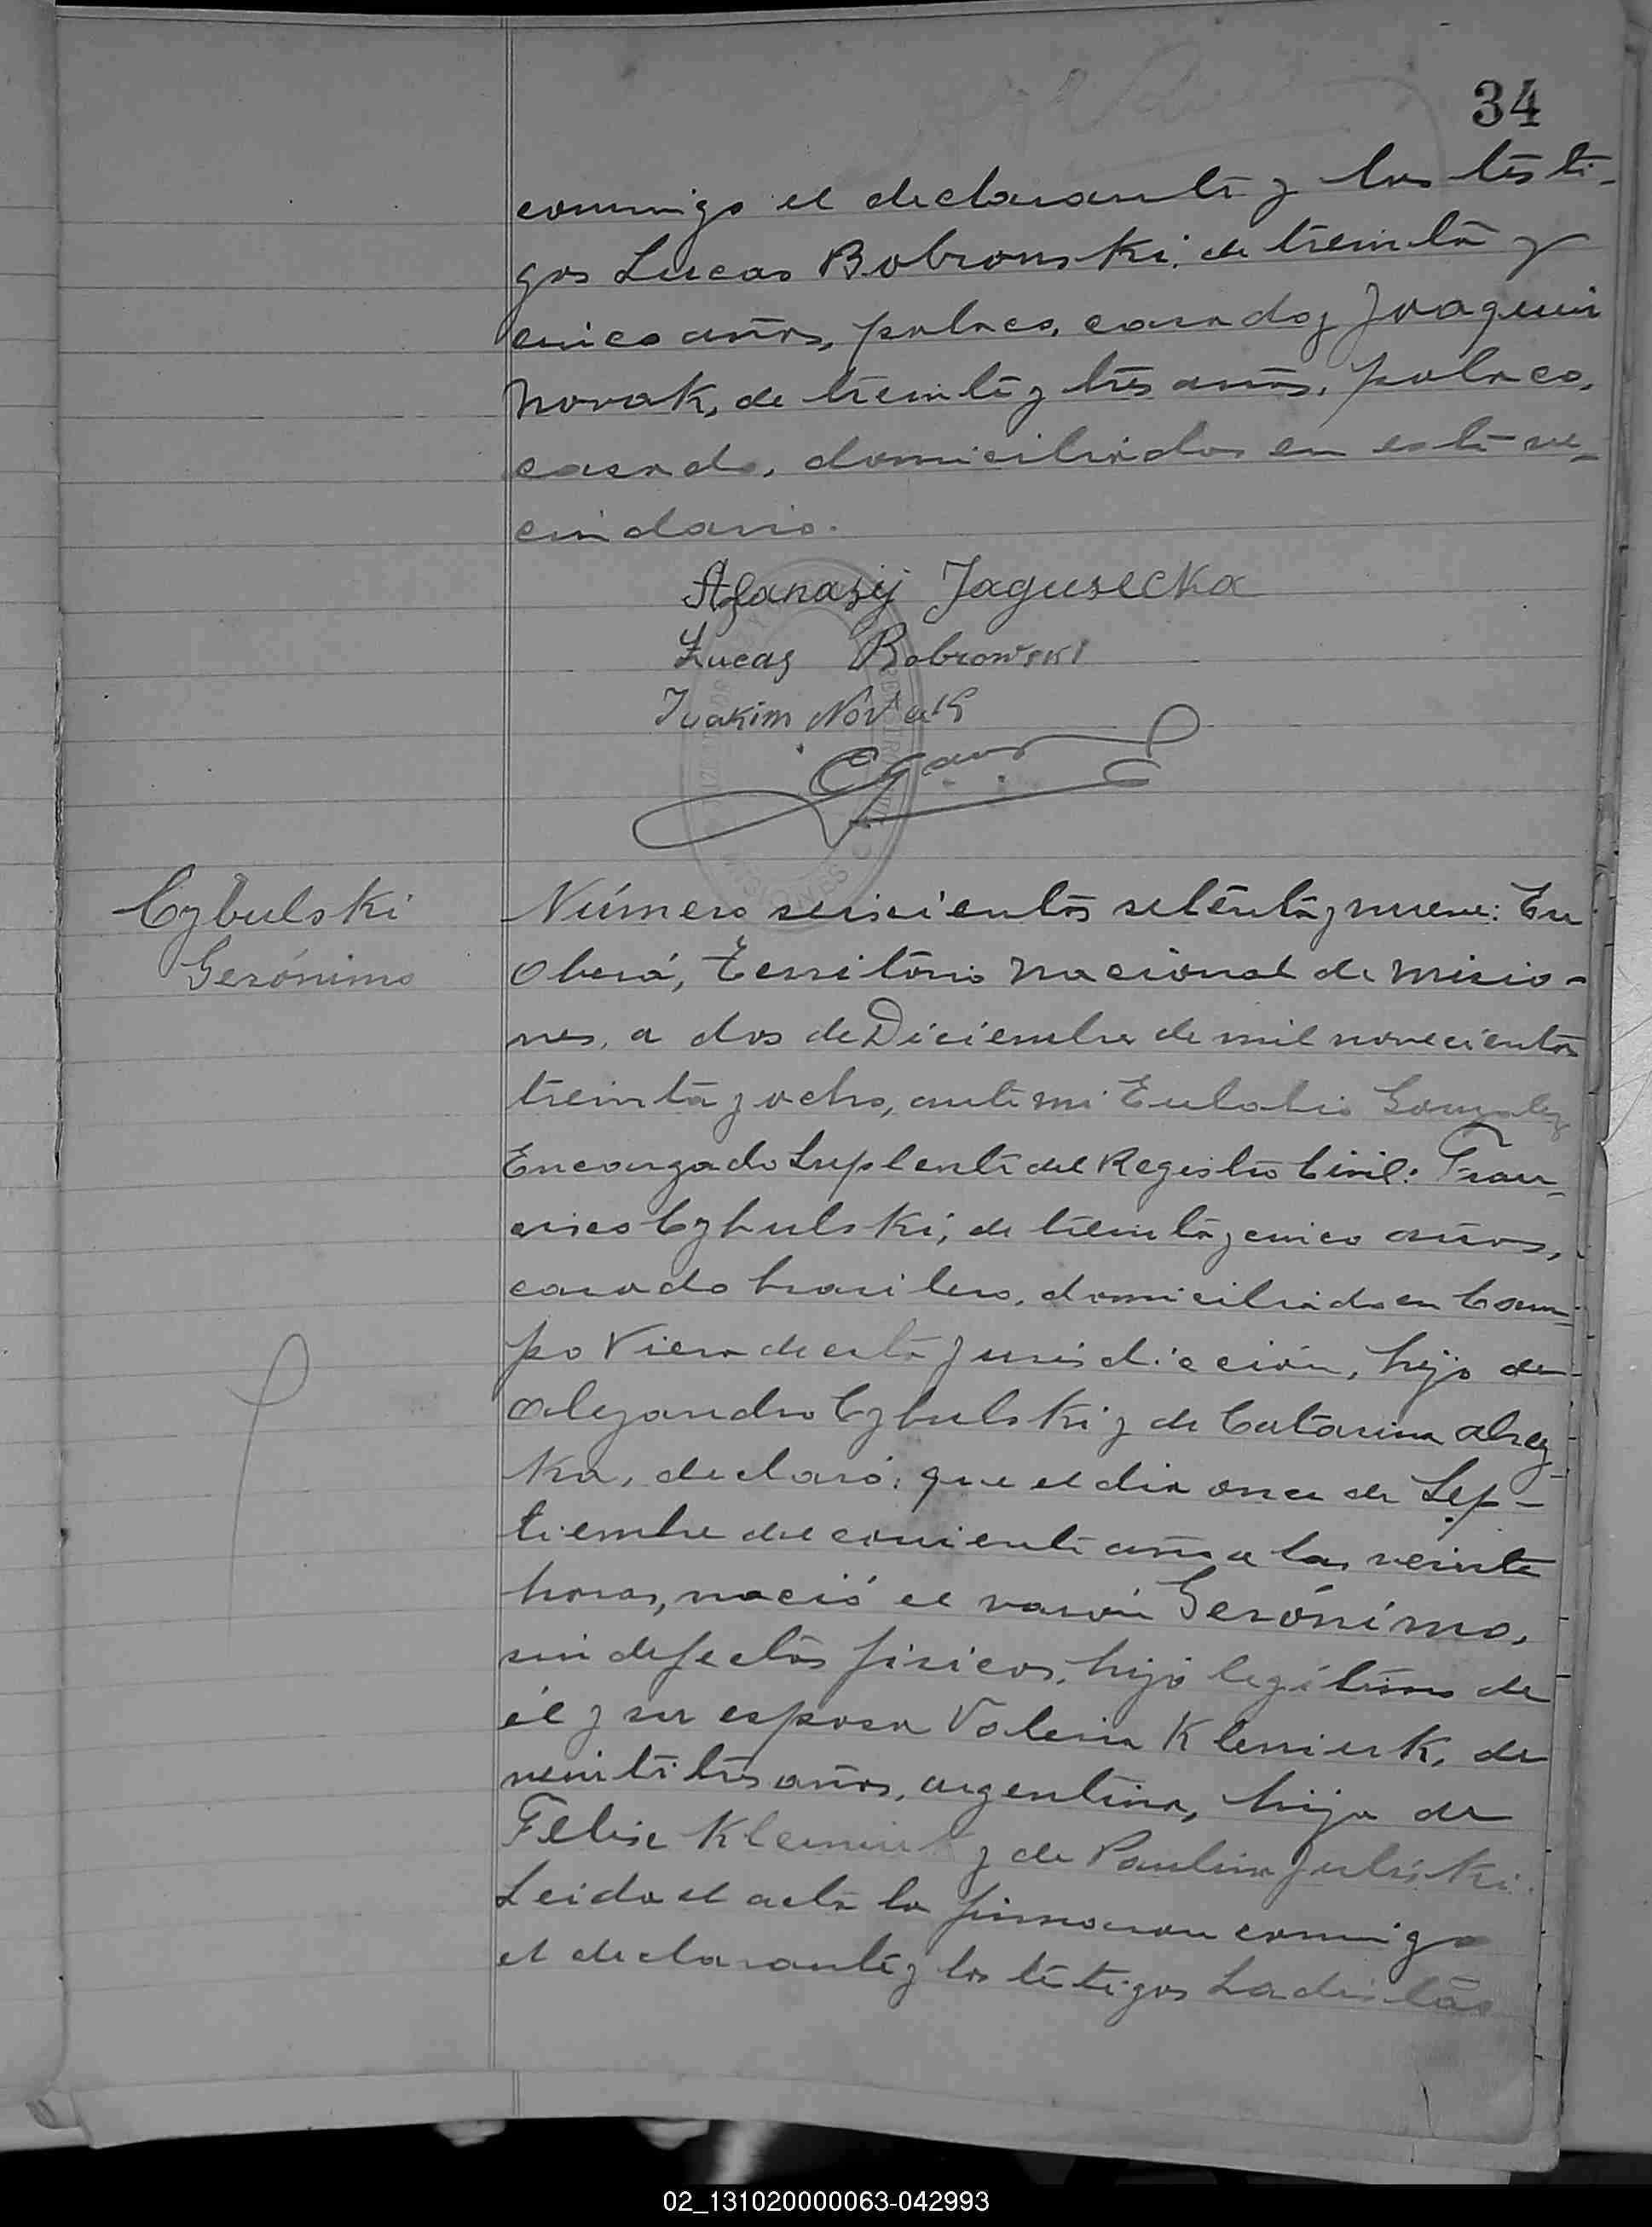 34
conmigo el declarante y los testi-
gos Lucas Bobrowski, de treinta y
cinco años, polaco, casado y Joaquin
Novak, de treinta y tres años, polaco,
casado, domiciliados en este ve-
cindario.
Afanasij Jagusecka
Lucas Bobrowski
Joakim Novak
Cybulski
Gerónimo
Número seiscientos setenta y nueve: En
Oberá, Territorio Nacional de Misio-
nes, a dos de Diciembre de mil novecientos
treinta y ocho, ante mi Eulalio Gonzalez
Encargado Suplente del Registro Civil: Fran-
cisco Cybulski, de treinta y cinco años,
casado brasilero, domiciliado en Cam-
po Viera de esta jurisdicción, hijo de
Alejandro Cybulski y de Catarina
ka, declaró: que el dia once de Sep-
tiembre del corriente año a las veinte
horas, nació el varón Gerónimo,
sin defectos fisicos, hijo legítimo de
él y su esposa Valeria Klemiuk, de
veintitres años, argentina, hija de
Felise Klemiuk y de Paulina Juliski.
Leida el acta la firmaron conmigo
el declarante y los testigos Ladislao
02_131020000063-042993